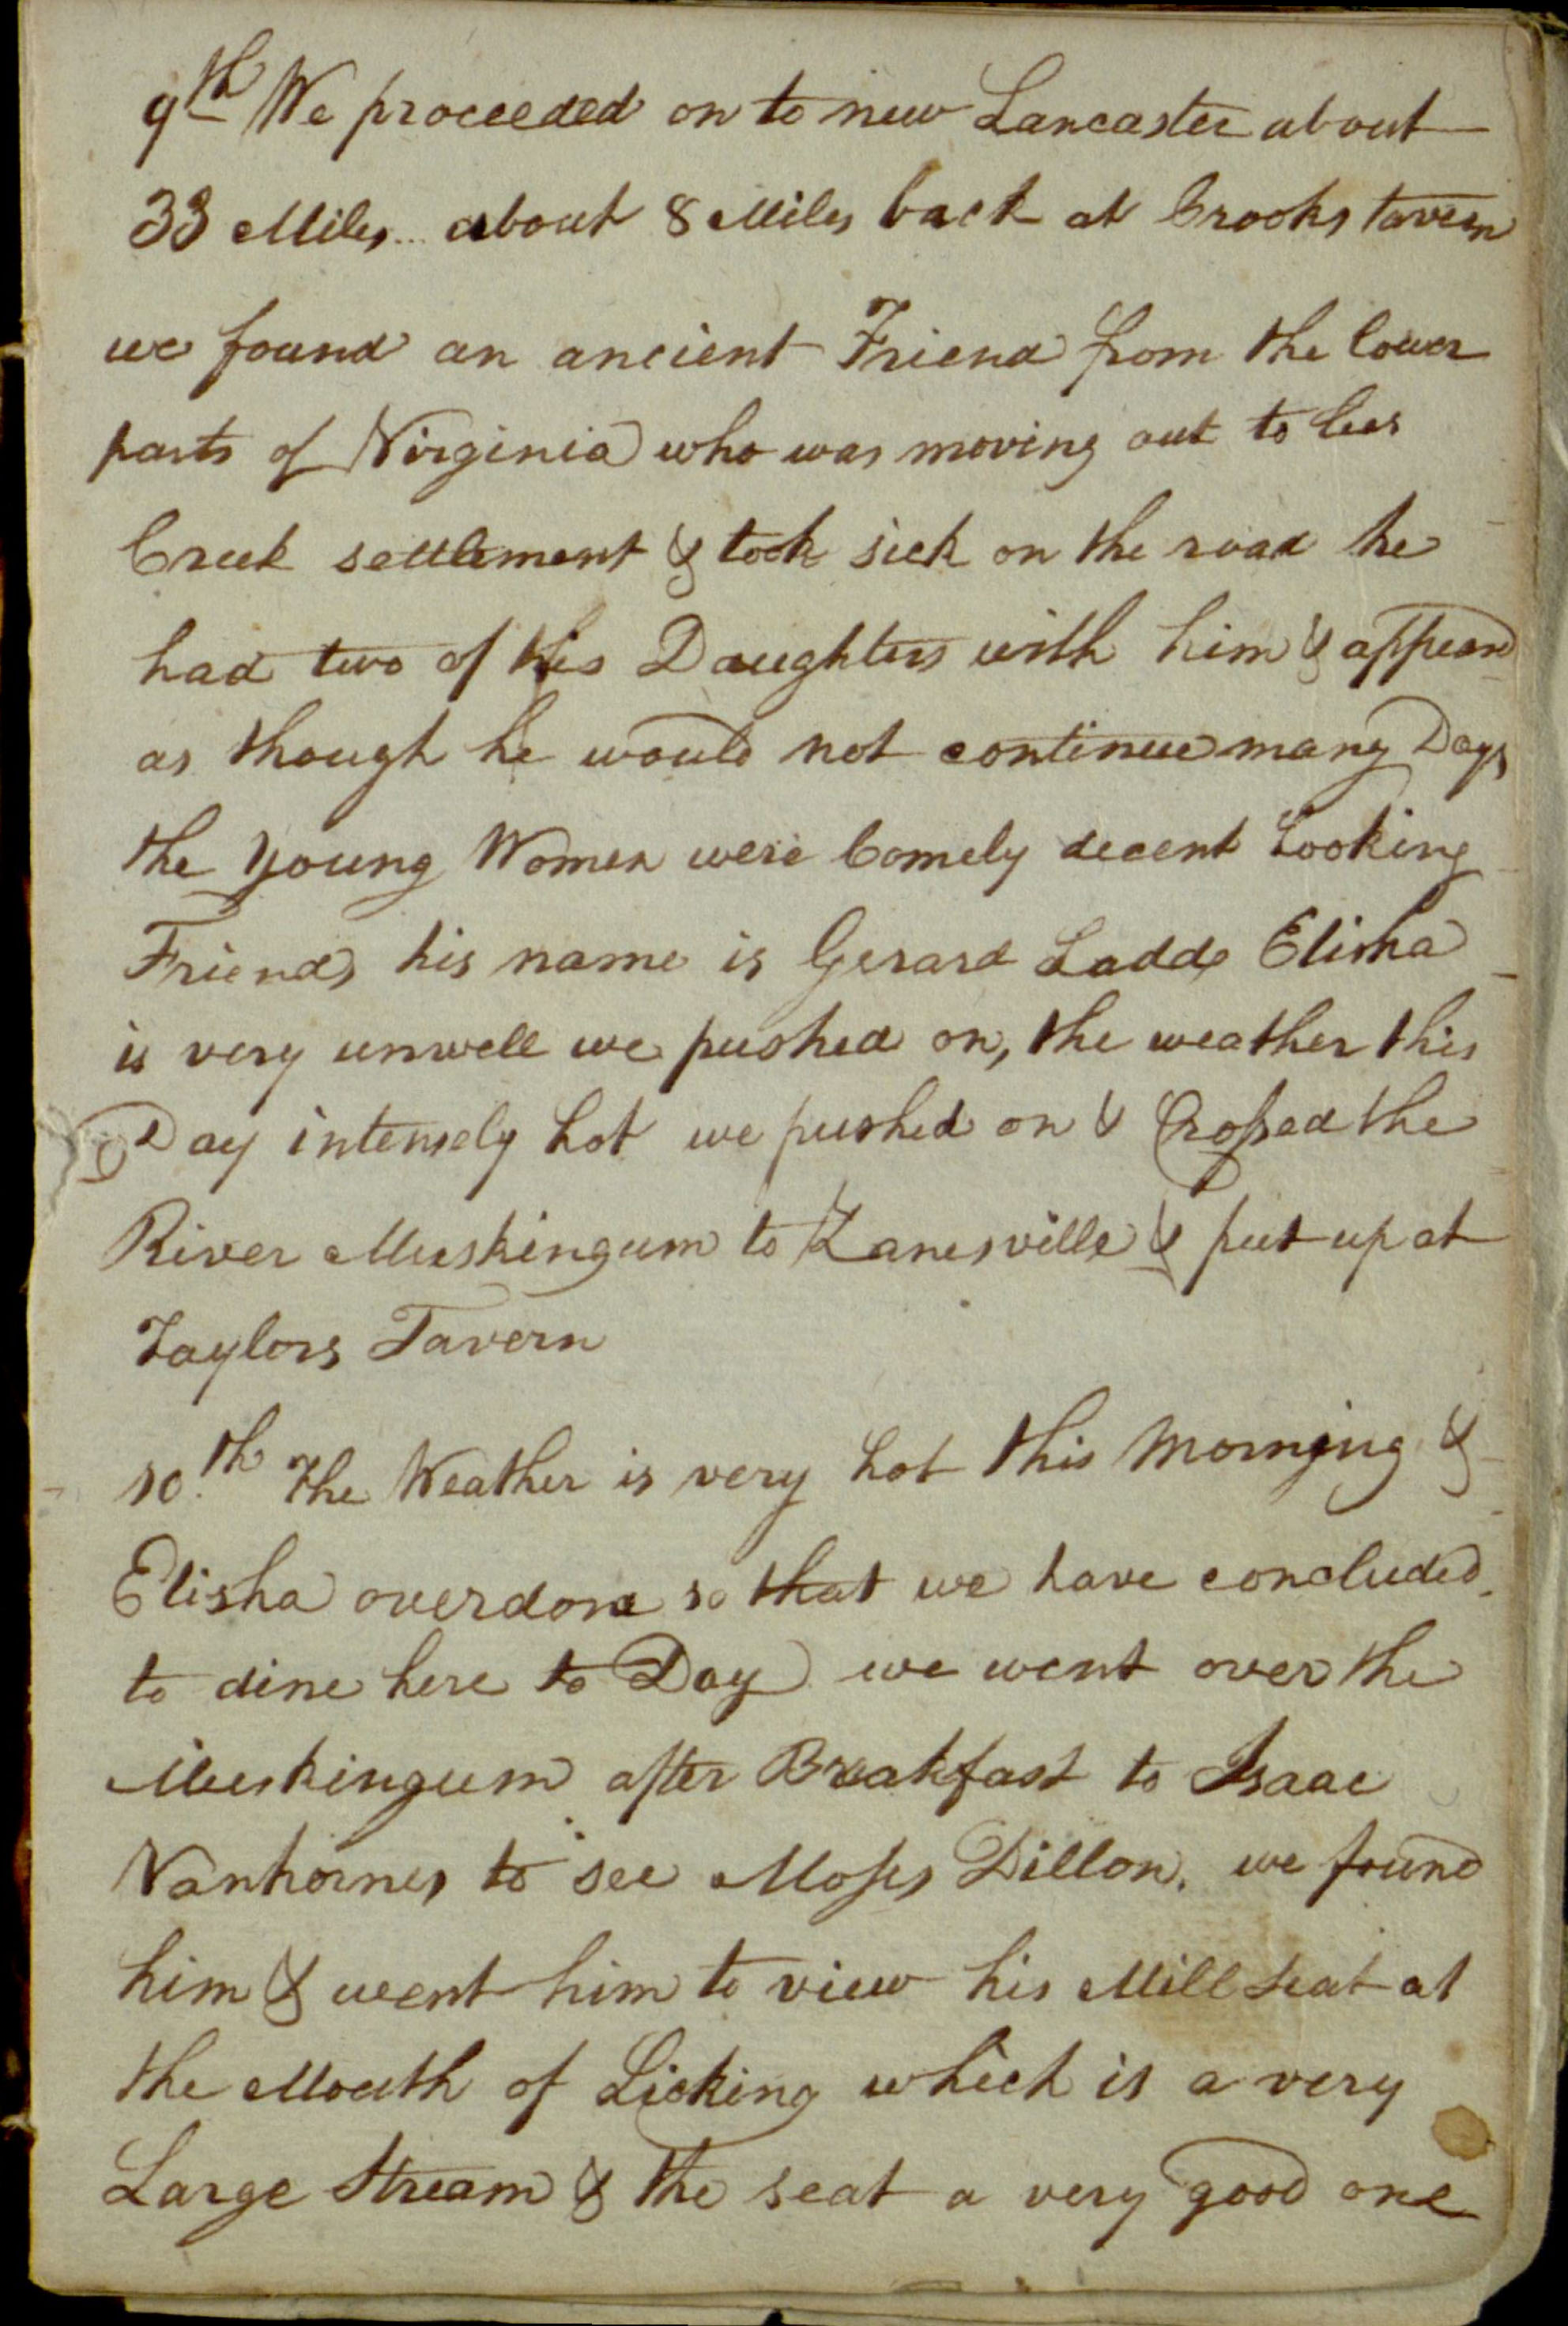 9th We proceeded on to new Lancaster about
33 Miles... about 8 Miles back at Crooks tavern
we found an ancient Friend from the lower
parts of Virginia who was moving out to lees
Creek settlement & took sick on the road he
had two of his Daughters with him & appeard
as though he would not continue many Days
the young Women were Comely decent Looking
Friends his name is Gerard Ladd, Elisha
is very unwell we pushed on, the weather this
Day intensely hot we pushed on & Crossed the
River Muskingum to Zanesville & put up at
Taylors Tavern
10.th The Weather is very hot this Morning &
Elisha overdone so that we have concluded
to dine here to Day we went over the
Muskingum after Breakfast to Isaac
Vanhornes to see Moses Dillon. we found
him & went him to view his Mill seat at
the Mouth of Licking which is a very
Large Stream & the seat a very good one